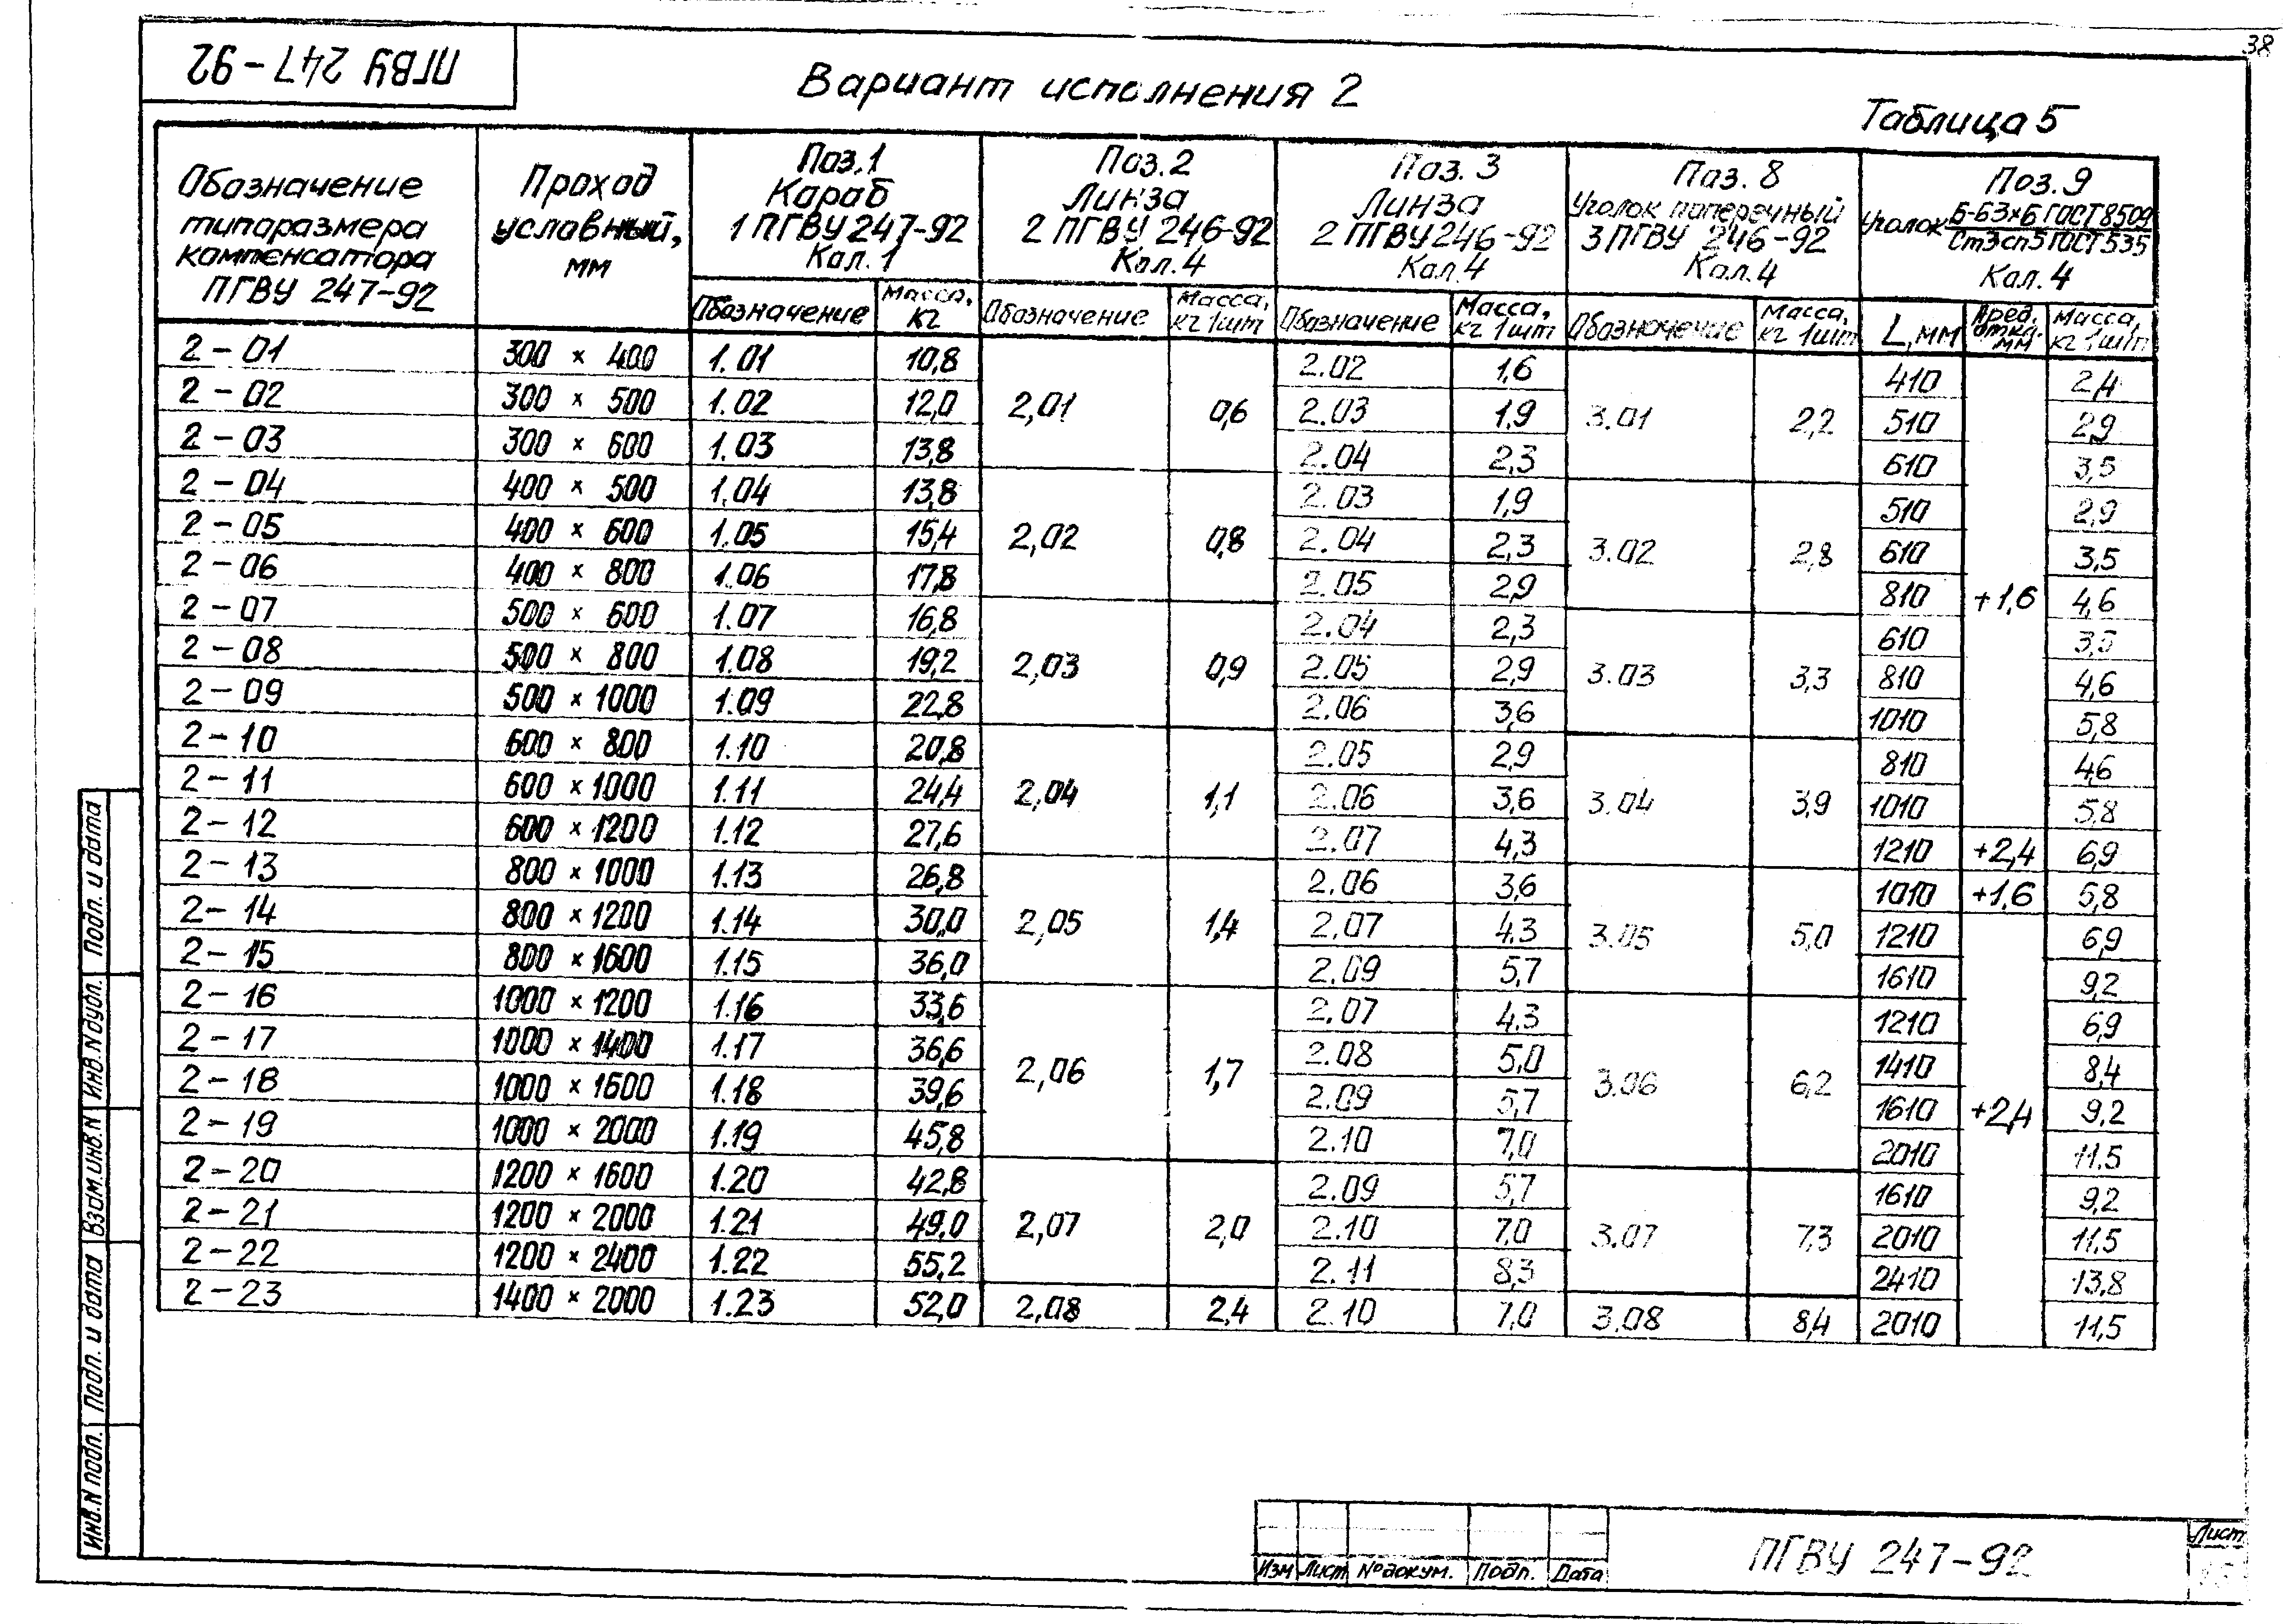 38
ПГВУ 247-92
Вариант исполнения 2
Таблица 5
Обозначение типоразмера компенсатора ПГВУ 247-92
Проход условный, мм
Поз.1 Караб 1 ПГВУ 247-92 Кол. 1
Поз.2 Линза 2 ПГВУ 246-92 Кол. 4
Поз. 3 Линза 2 ПГВУ 246-92 Кол. 4
Поз. 8 Уголок поперечный 3 ПГВУ 246-92 Кол. 4
Поз. 9 Уголок Б-63х6 ГОСТ 8509 Ст3сп5 ГОСТ 535 Кол. 4
Обозначение Масса, кг Обозначение Масса, кг 1шт Обозначение Масса, кг 1шт Обозначение Масса, кг 1шт L, мм Пред. откл. мм Масса, кг 1шт
2-01 300 × 400 1.01 10,8 2.02 1,6 410 2,4
2-02 300 × 500 1.02 12,0 2,01 0,6 2.03 1,9 3.01 2,2 510 2,9
2-03 300 × 600 1.03 13,8 2.04 2,3 610 3,5
2-04 400 × 500 1.04 13,8 2.03 1,9 510 2,9
2-05 400 × 600 1.05 15,4 2,02 0,8 2.04 2,3 3.02 2,8 610 3,5
2-06 400 × 800 1.06 17,8 2.05 2,9 810 +1,6 4,6
2-07 500 × 600 1.07 16,8 2.04 2,3 610 3,5
2-08 500 × 800 1.08 19,2 2,03 0,9 2.05 2,9 3.03 3,3 810 4,6
2-09 500 × 1000 1.09 22,8 2.06 3,6 1010 5,8
2-10 600 × 800 1.10 20,8 2.05 2,9 810 4,6
2-11 600 × 1000 1.11 24,4 2,04 1,1 2.06 3,6 3.04 3,9 1010 5,8
2-12 600 × 1200 1.12 27,6 2.07 4,3 1210 +2,4 6,9
2-13 800 × 1000 1.13 26,8 2.06 3,6 1010 +1,6 5,8
2-14 800 × 1200 1.14 30,0 2,05 1,4 2.07 4,3 3.05 5,0 1210 6,9
2-15 800 × 1600 1.15 36,0 2.09 5,7 1610 9,2
2-16 1000 × 1200 1.16 33,6 2.07 4,3 1210 6,9
2-17 1000 × 1400 1.17 36,6 2,06 1,7 2.08 5,0 3.06 6,2 1410 8,4
2-18 1000 × 1600 1.18 39,6 2.09 5,7 1610 +2,4 9,2
2-19 1000 × 2000 1.19 45,8 2.10 7,0 2010 11,5
2-20 1200 × 1600 1.20 42,8 2.09 5,7 1610 9,2
2-21 1200 × 2000 1.21 49,0 2,07 2,0 2.10 7,0 3.07 7,3 2010 11,5
2-22 1200 × 2400 1.22 55,2 2.11 8,3 2410 13,8
2-23 1400 × 2000 1.23 52,0 2,08 2,4 2.10 7,0 3.08 8,4 2010 11,5
Инв.N подл. Подп. и дата Взам.инв.N Инв.N дубл. Подп. и дата
Изм Лист № докум. Подп. Дата
ПГВУ 247-92
Лист